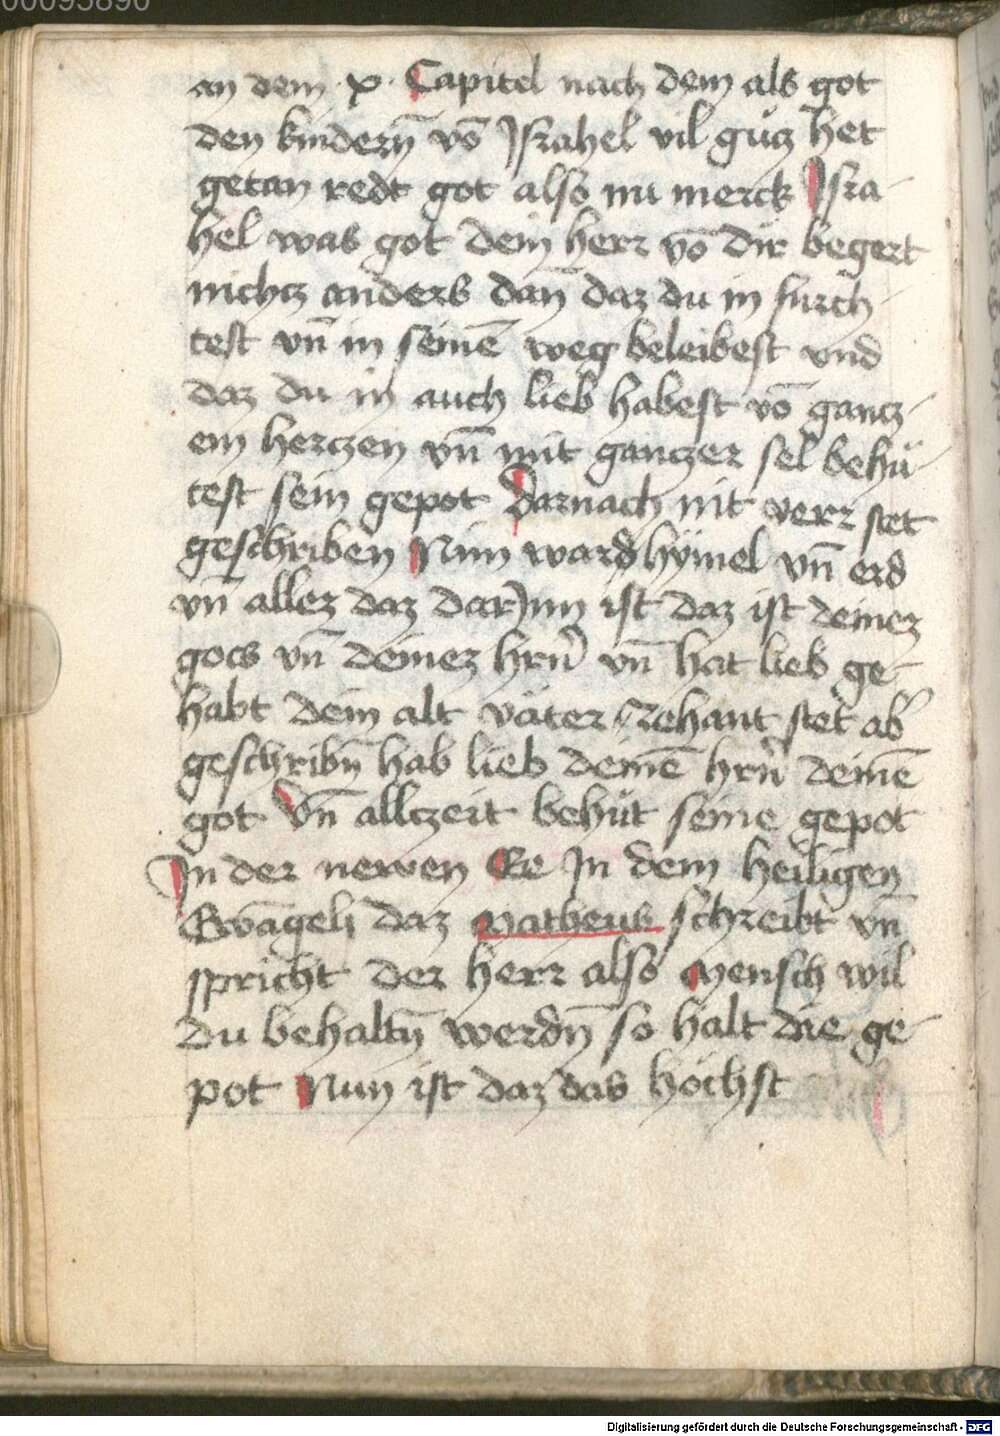 00095890
an dem · x · Capitel nach dem als got
den kindern̄ vō Jsrahel vil gůcz het
getan redt got also nu merck Jsra-
hel was got dein herr vō dir begert
nichcz anders dan̄ daz du in furch-
test vn̄ in seinē weg beleibest vnd
daz du in auch lieb habest vō gancz-
em herczen vn̄ mit ganczer sel behü-
test sein gepot Darnach nit verr stet
geschriben Nim ward hymel vn̄ erd
vn̄ allez daz dar Jnn ist daz ist deinez
gocs vn̄ deinez hrn̄ vn̄ hat lieb ge-
habt dein alt väter Zehant stet ab̕
geschribn̄ hab lieb deinē hrn̄ deinē
got Vn̄ allczeit behüt seine gepot
Jn der newen Ee Jn dem heiligen
Ewāgelj daz Matheus schreibt vn̄
spricht der herr also Mensch wil
du behaltn̄ werdn̄ so halt die ge-
pot Nun ist daz das höchst
Digitalisierung gefördert durch die Deutsche Forschungsgemeinschaft - DFG